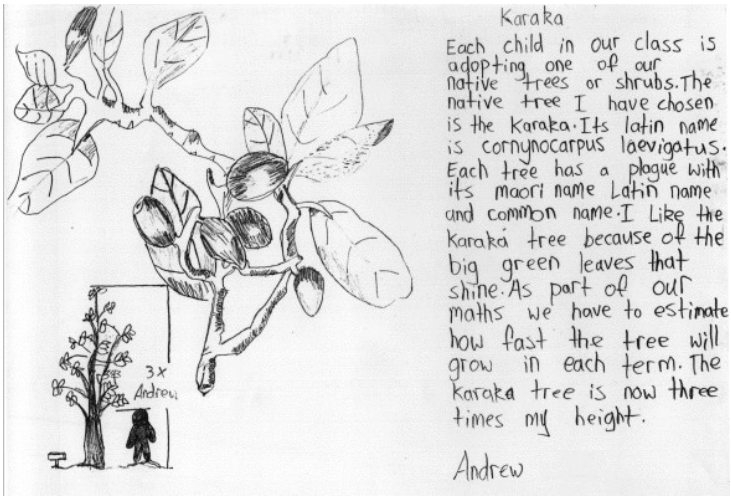 Karaka
Each child in our class is
adopting one of our
native trees or shrubs. The
native tree I have chosen
is the Karaka. Its latin name
is cornynocarpus laevigatus.
Each tree has a plague with
its maori name Latin name
and common name. I Like the
Karaka tree because of the
big green leaves that
shine. As part of our
maths we have to estimate
how fast the tree will
grow in each term. The
Karaka tree is now three
times my height.
Andrew
3x
Andrew